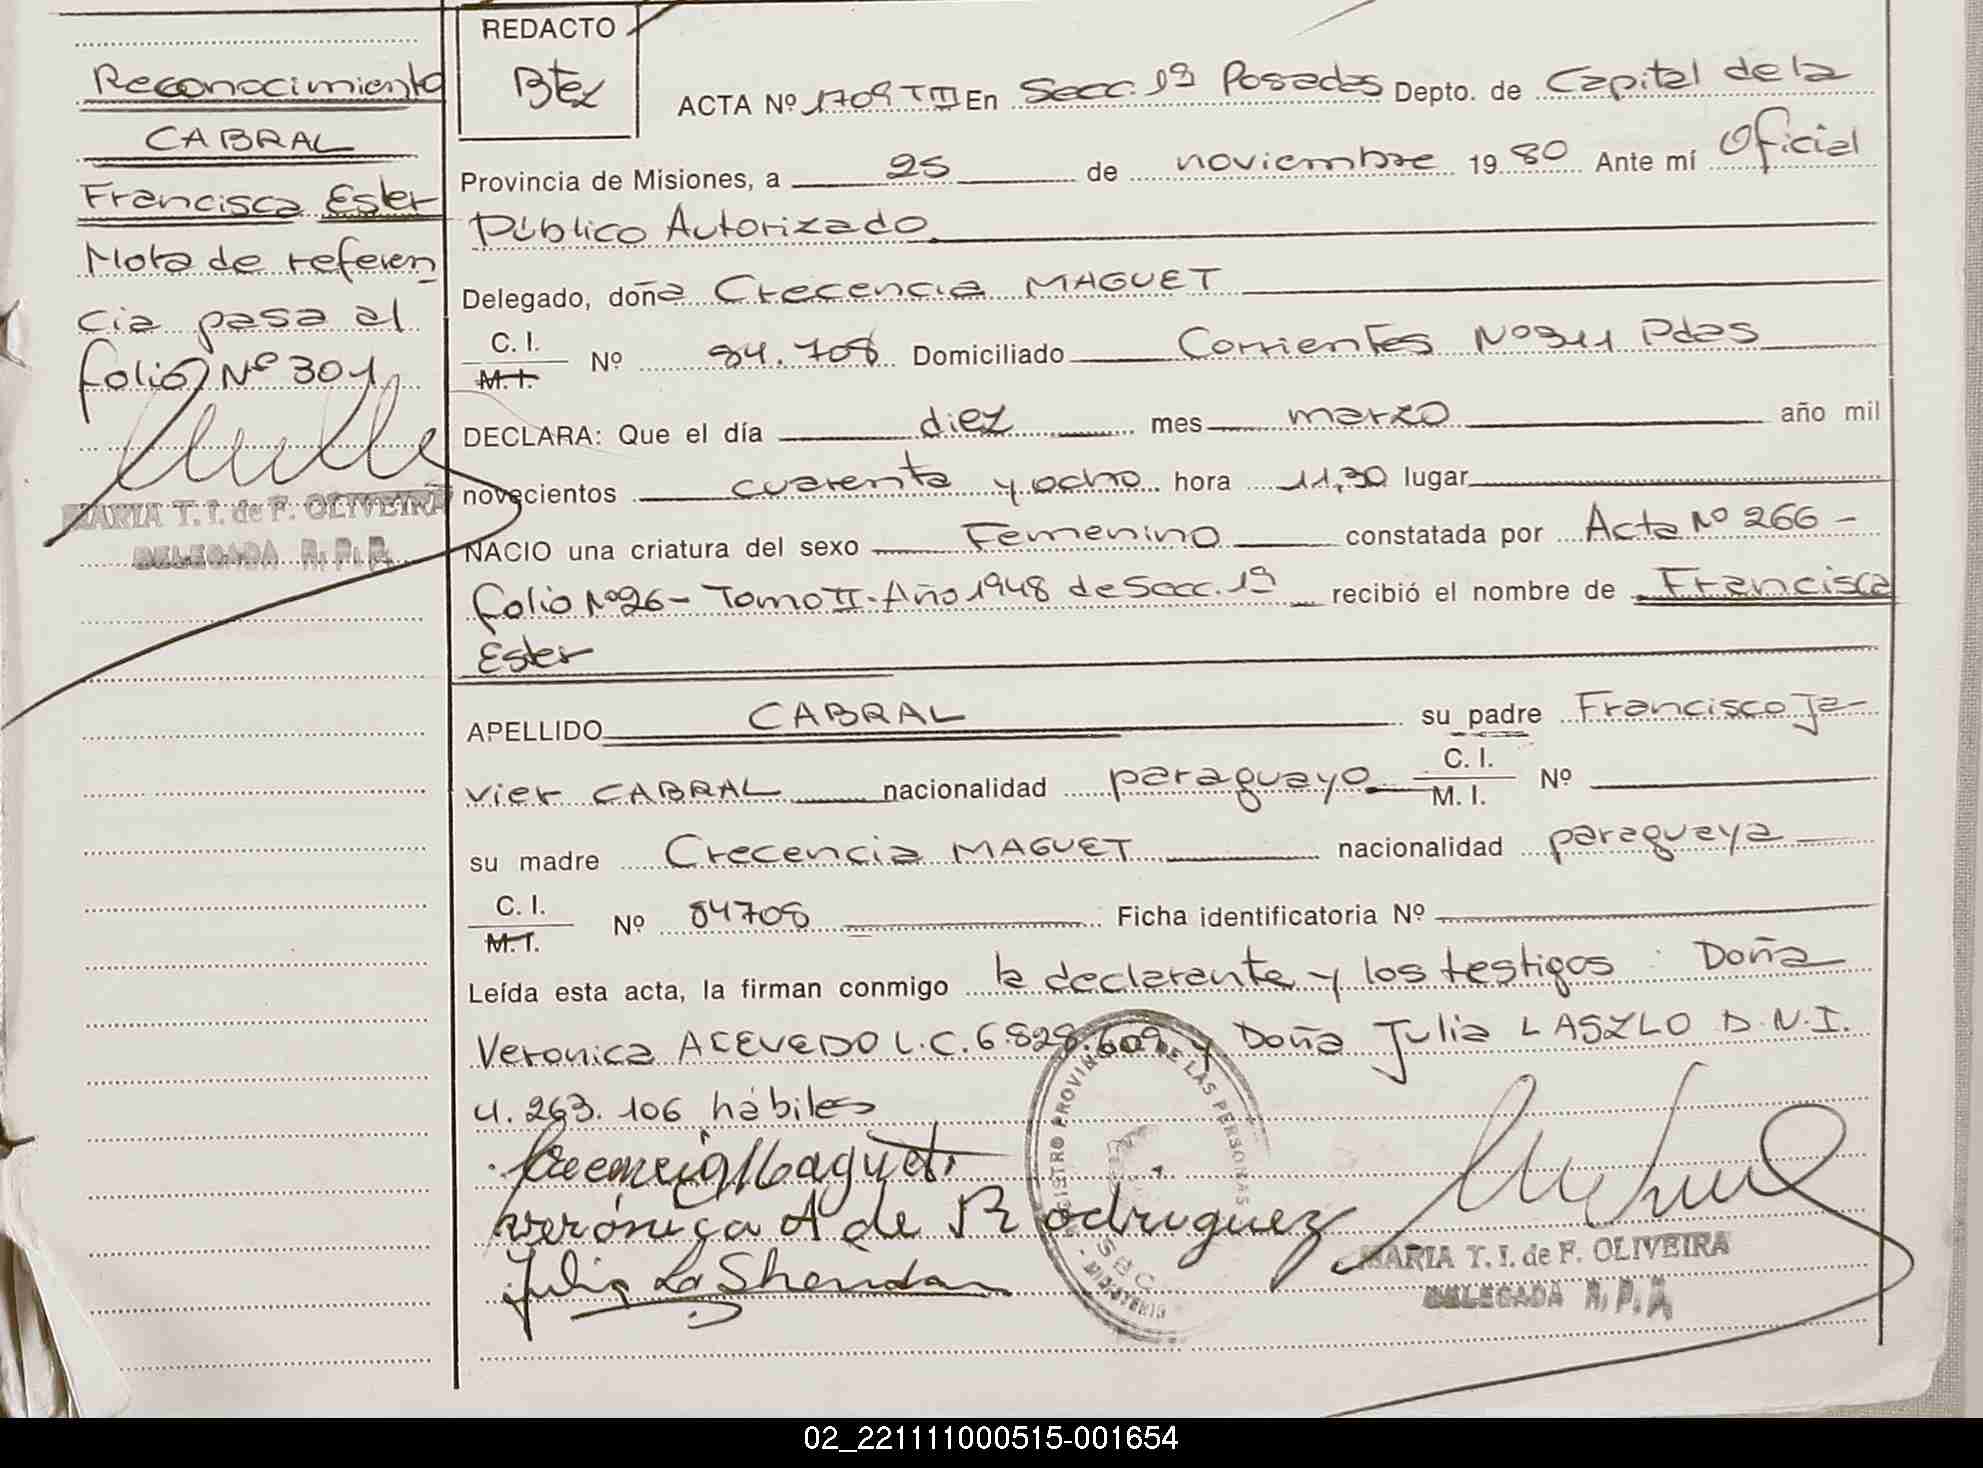 Reconocimiento
CABRAL
Francisca Ester
Nota de referen
cia pasa al
folio Nº 301
MARIA T. I. de F. OLIVEIRA
DELEGADA R. P. P.
REDACTO
ACTA Nº 1709 TIII En Secc. 1ª Posadas Depto. de Capital de la
Provincia de Misiones, a 25 de noviembre 1980 Ante mí Oficial
Público Autorizado
Delegado, doña Crecencia MAGUET
C. I.
M. I. Nº 84.708 Domiciliado Corrientes Nº 311 Pdas
DECLARA: Que el día diez mes marzo año mil
novecientos cuarenta y ocho hora 11,30 lugar
NACIO una criatura del sexo Femenino constatada por Acta Nº 266 -
folio Nº 26 - Tomo II - Año 1948 de Secc. 1ª recibió el nombre de Francisca
Ester
APELLIDO CABRAL su padre Francisco Ja-
vier CABRAL nacionalidad paraguayo C. I. M. I. Nº
su madre Crecencia MAGUET nacionalidad paraguaya
C. I.
M. I. Nº 84708 Ficha identificatoria Nº
Leída esta acta, la firman conmigo la declarante y los testigos: Doña
Veronica ACEVEDO L.C. 6.828.609 y Doña Julia LASZLO D.N.I.
4.263.106 hábiles
Crecencia Maguet
verónica A de Rodriguez
Julia
REGISTRO PROVINCIAL DE LAS PERSONAS
MINISTERIO
MARIA T. I. de F. OLIVEIRA
DELEGADA R. P. P.
02_221111000515-001654